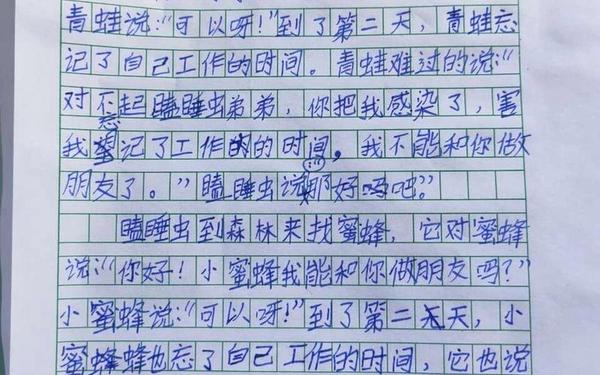 青蛙说:“可以呀!”到了第二天,青蛙忘
记了自己工作的时间。青蛙难过的说:“
对不起瞌睡虫弟弟,你把我感染了,害
我忘记了工作的的时间,我不能和你做
朋友了。”瞌睡虫说:“那好吗吧。”
瞌睡虫到森林来找蜜蜂,它对蜜蜂
说:“你好!小蜜蜂我能和你做朋友吗?”
小蜜蜂说:“可以呀!”到了第二天,小
蜜蜂蜂也忘了自己工作的时间,它也说